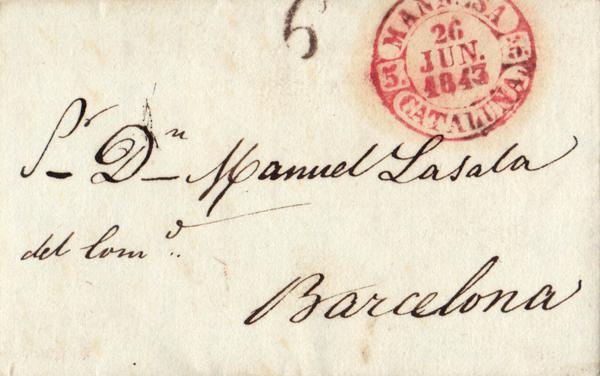 6
MANRESA
26
JUN.
1843
5. 5.
CATALUÑA
Sr. Dn Manuel Lasala
del Com.o
Barcelona